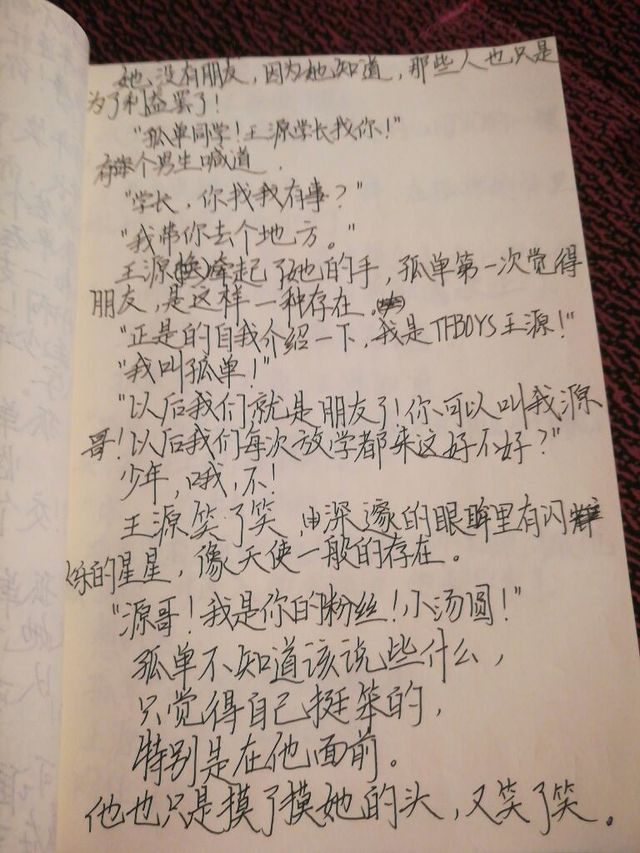 她没有朋友，因为她知道，那些人也只是
为了利益罢了！
"孤单同学！王源学长找你！"
有个男生喊道．
"学长，你找我有事？"
"我带你去个地方。"
王源牵起了她的手，孤单第一次觉得
朋友，是这样一种存在。
"正是的自我介绍一下，我是TFBOYS王源！"
"我叫孤单！"
"以后我们就是朋友了！你可以叫我源
哥！以后我们每次放学都来这好不好？"
少年，哦，不！
王源笑了笑，深邃的眼眸里有闪
烁的星星，像天使一般的存在。
"源哥！我是你的粉丝！小汤圆！"
孤单不知道该说些什么，
只觉得自己挺笨的，
特别是在他面前。
他也只是摸了摸她的头，又笑了笑。